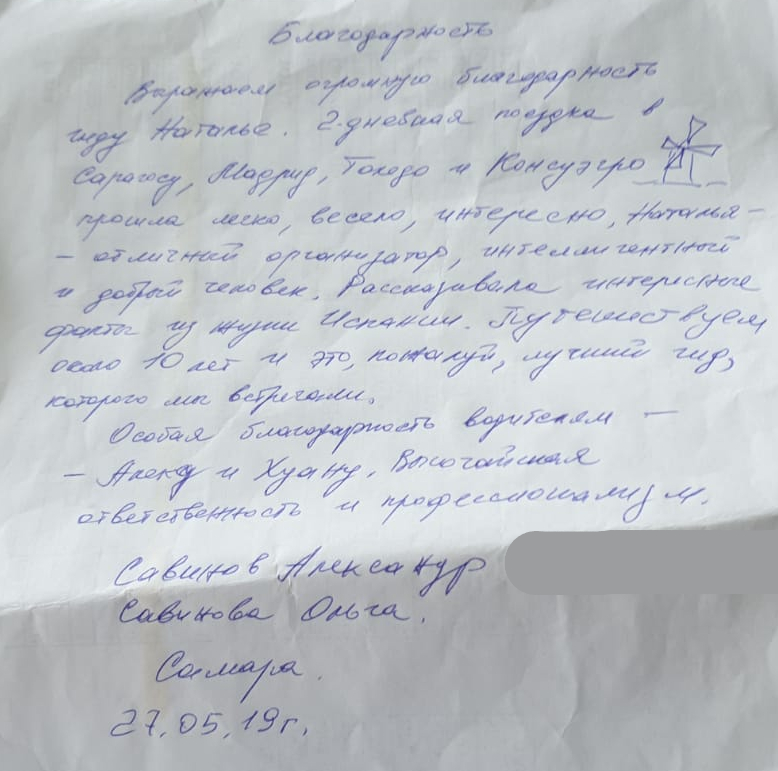 Благодарность
Выражаем огромную благодарность
гиду Наталье. 2-дневная поездка в
Сарагосу, Мадрид, Толедо и Консуэгро
прошла легко, весело, интересно, Наталья -
- отличный организатор, интеллигентный
и добрый человек. Рассказывала интересные
факты из жизни Испании. Путешествуем
около 10 лет и это, пожалуй, лучший гид,
которого мы встречали.
Особая благодарность водителям -
- Алексу и Хуану. Высочайшая
ответственность и профессионализм.
Савинов Александр
Савинова Ольга.
Самара.
27.05.19г.